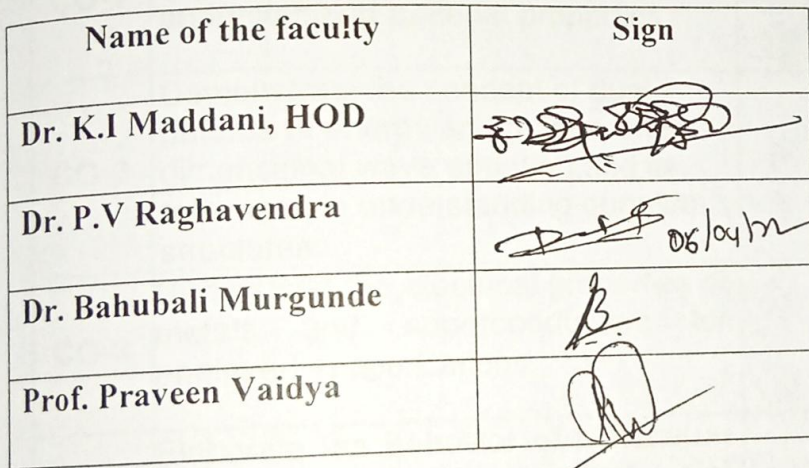 Name of the faculty Sign
Dr. K.I Maddani, HOD
Dr. P.V Raghavendra 06/04/22
Dr. Bahubali Murgunde
Prof. Praveen Vaidya